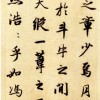 之章少焉月
於斗牛之間
天縱一葦之
然浩〻乎如馮